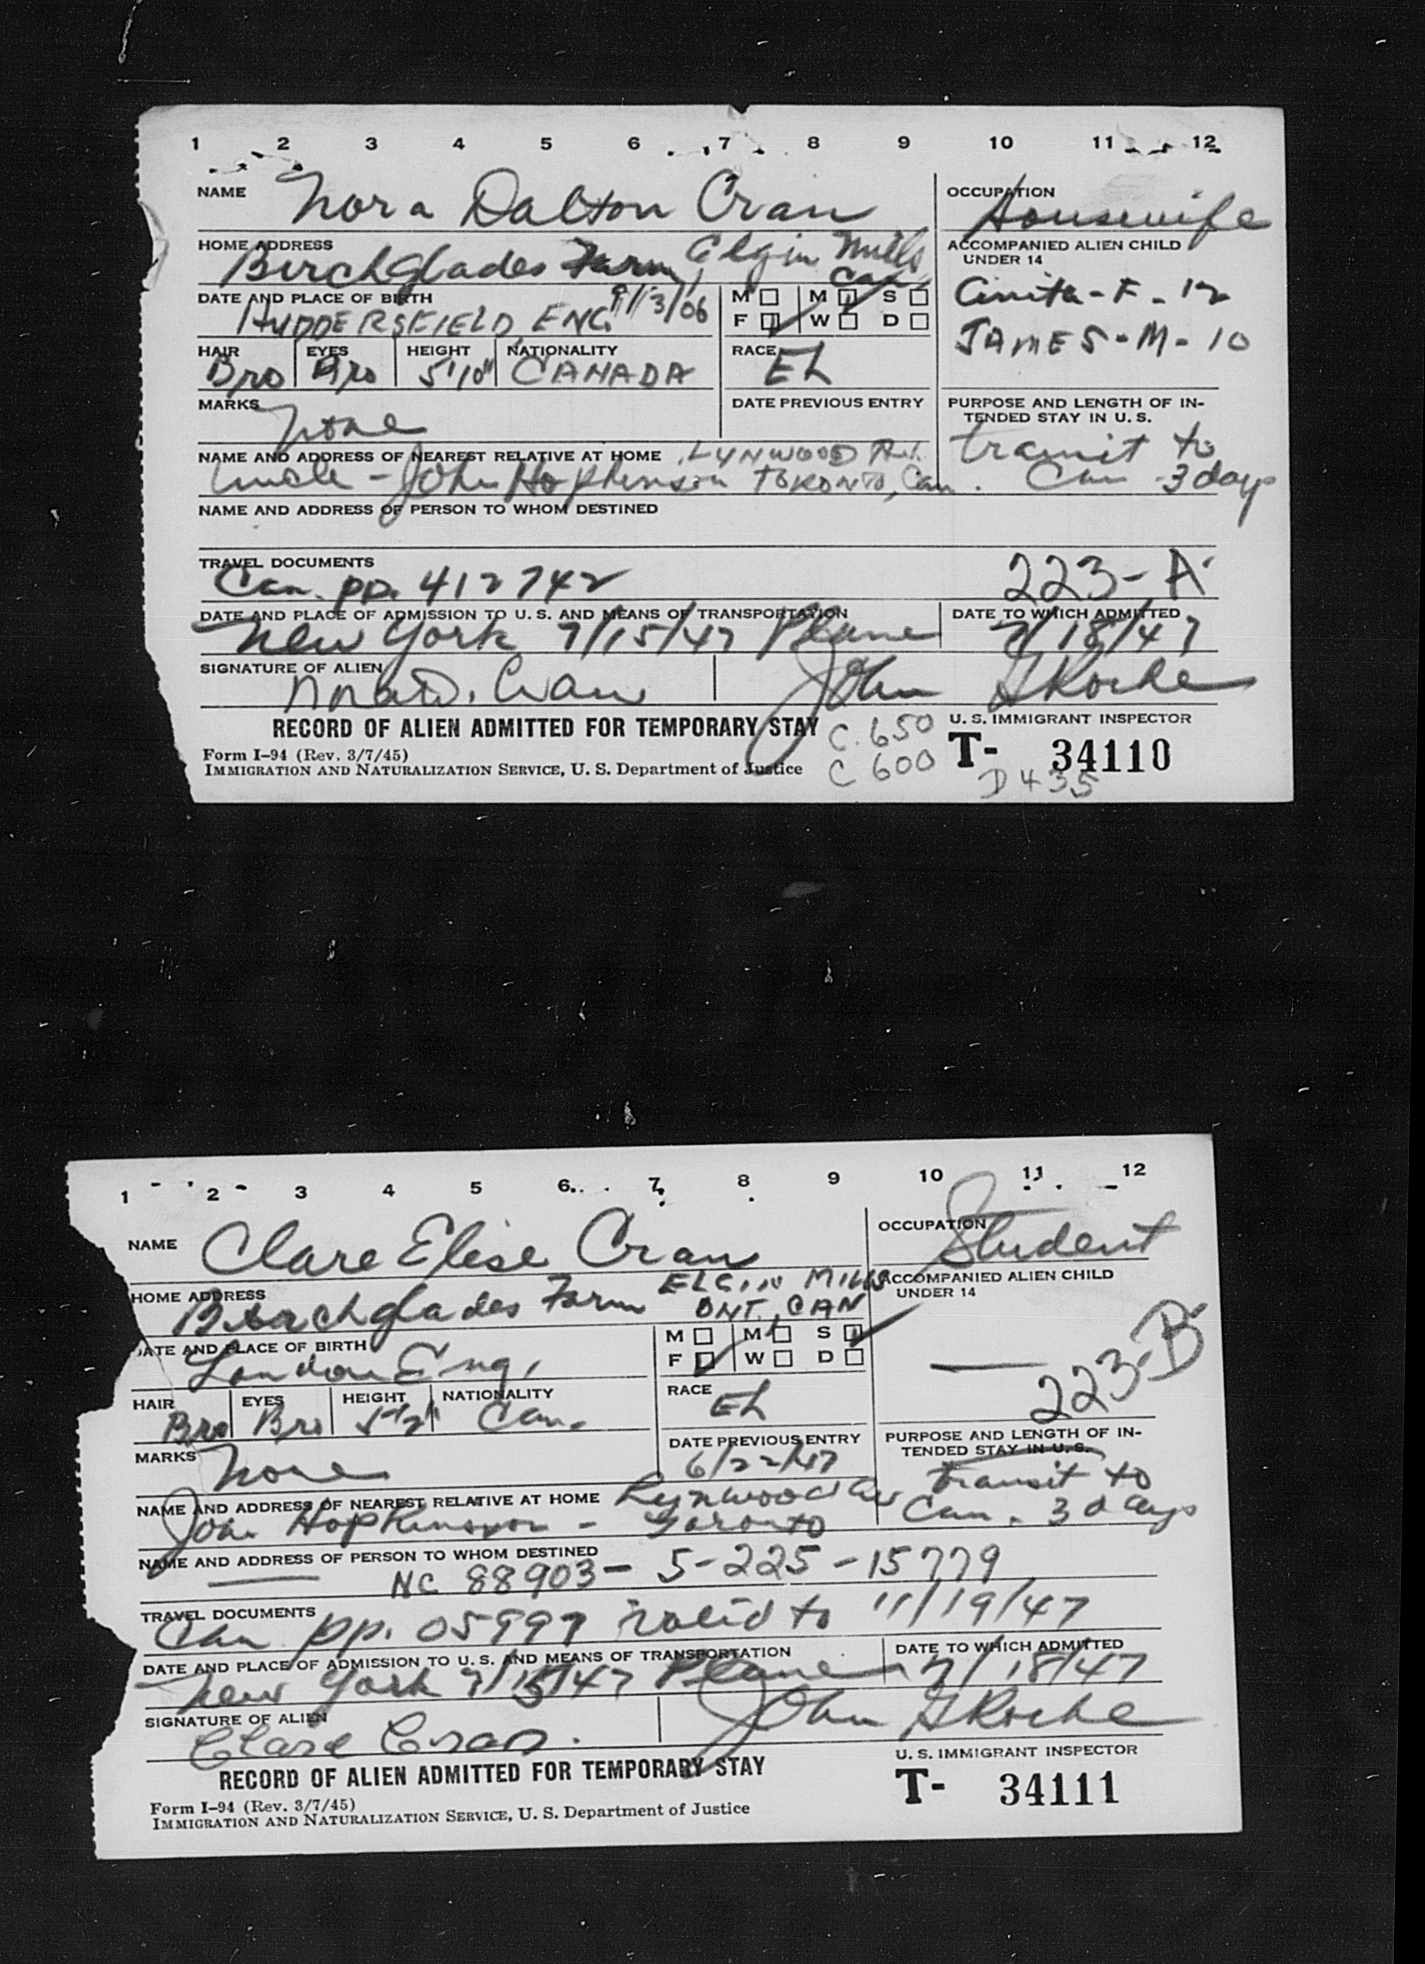 1 2 3 4 5 6 7 8 9 10 11 12
NAME Nora Dalton Cran OCCUPATION Housewife
HOME ADDRESS Birchglades Farm, Elgin Mills Can. ACCOMPANIED ALIEN CHILD UNDER 14
Anita-F-12
JAMES-M-10
DATE AND PLACE OF BIRTH HUDDERSFIELD, ENG. /13/06 M M S
F W D
HAIR Bro EYES Bro HEIGHT 5'10" NATIONALITY CANADA RACE Eh
MARKS None DATE PREVIOUS ENTRY PURPOSE AND LENGTH OF INTENDED STAY IN U. S.
transit to
Can 3 days
NAME AND ADDRESS OF NEAREST RELATIVE AT HOME LYNWOOD
Uncle - John Hopkinson TORONTO, Can.
NAME AND ADDRESS OF PERSON TO WHOM DESTINED
TRAVEL DOCUMENTS
Can. pp. 412742 223-A
DATE AND PLACE OF ADMISSION TO U. S. AND MEANS OF TRANSPORTATION DATE TO WHICH ADMITTED
New York 7/15/47 Plane 7/18/47
SIGNATURE OF ALIEN Nora D. Cran John G Roche
RECORD OF ALIEN ADMITTED FOR TEMPORARY STAY C. 650 U. S. IMMIGRANT INSPECTOR
Form I-94 (Rev. 3/7/45) C 600 T- 34110
IMMIGRATION AND NATURALIZATION SERVICE, U. S. Department of Justice D 435
1 2 3 4 5 6 7 8 9 10 11 12
NAME Clare Elise Cran OCCUPATION Student
HOME ADDRESS Birchglades Farm ELGIN MILLS ONT. CAN ACCOMPANIED ALIEN CHILD UNDER 14
DATE AND PLACE OF BIRTH London Eng. M M S
F W D
223-B
HAIR Bro EYES Bro HEIGHT NATIONALITY Can. RACE Eh
MARKS None DATE PREVIOUS ENTRY 6/22/47 PURPOSE AND LENGTH OF INTENDED STAY IN U. S.
transit to
Can. 3 days
NAME AND ADDRESS OF NEAREST RELATIVE AT HOME Lynwood Av
John Hopkinson - Toronto
NAME AND ADDRESS OF PERSON TO WHOM DESTINED
NC 88903- 5-225-15779
TRAVEL DOCUMENTS
Can pp. 05997 valid to 11/19/47
DATE AND PLACE OF ADMISSION TO U. S. AND MEANS OF TRANSPORTATION DATE TO WHICH ADMITTED
New York 7/15/47 Plane 7/18/47
SIGNATURE OF ALIEN Clare Cran. John G Roche
RECORD OF ALIEN ADMITTED FOR TEMPORARY STAY U. S. IMMIGRANT INSPECTOR
Form I-94 (Rev. 3/7/45) T- 34111
IMMIGRATION AND NATURALIZATION SERVICE, U. S. Department of Justice